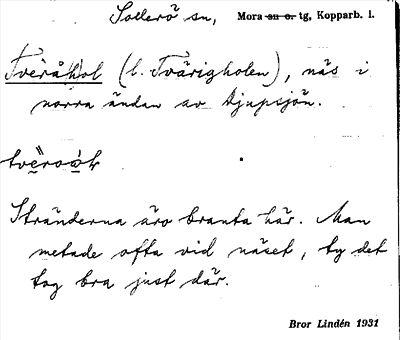 Sollerö sn, Mora sn o. tg, Kopparb. l.
Tveråhol (l. Tvärigholen), näs i
norra ändan av Djupsjön.
Stränderna äro branta här. Man
metade ofta vid näset, ty det
tog bra just där.
Bror Lindén 1931